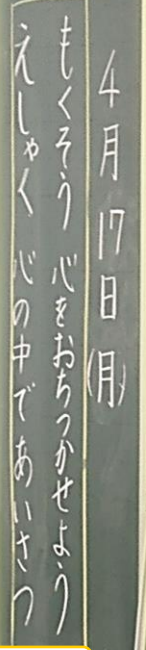 4月17日(月)
もくそう 心をおちつかせよう
えしゃく 心の中であいさつ